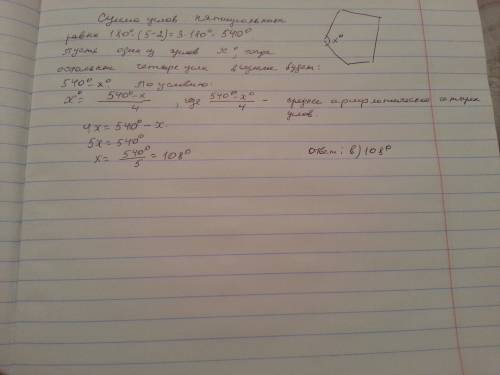 Сумма углов пятиугольника
равна 180°·(5-2)=3·180°=540°
Пусть один из углов x°, тогда
остальные четыре угла в сумме будет:
540°-x°. По условию:
x°= 540°-x / 4 , где 540°-x° / 4 - среднее арифметическое четырех
углов.
4x=540°-x
5x=540°
x= 540° / 5 =108°
Ответ: в) 108°
x°